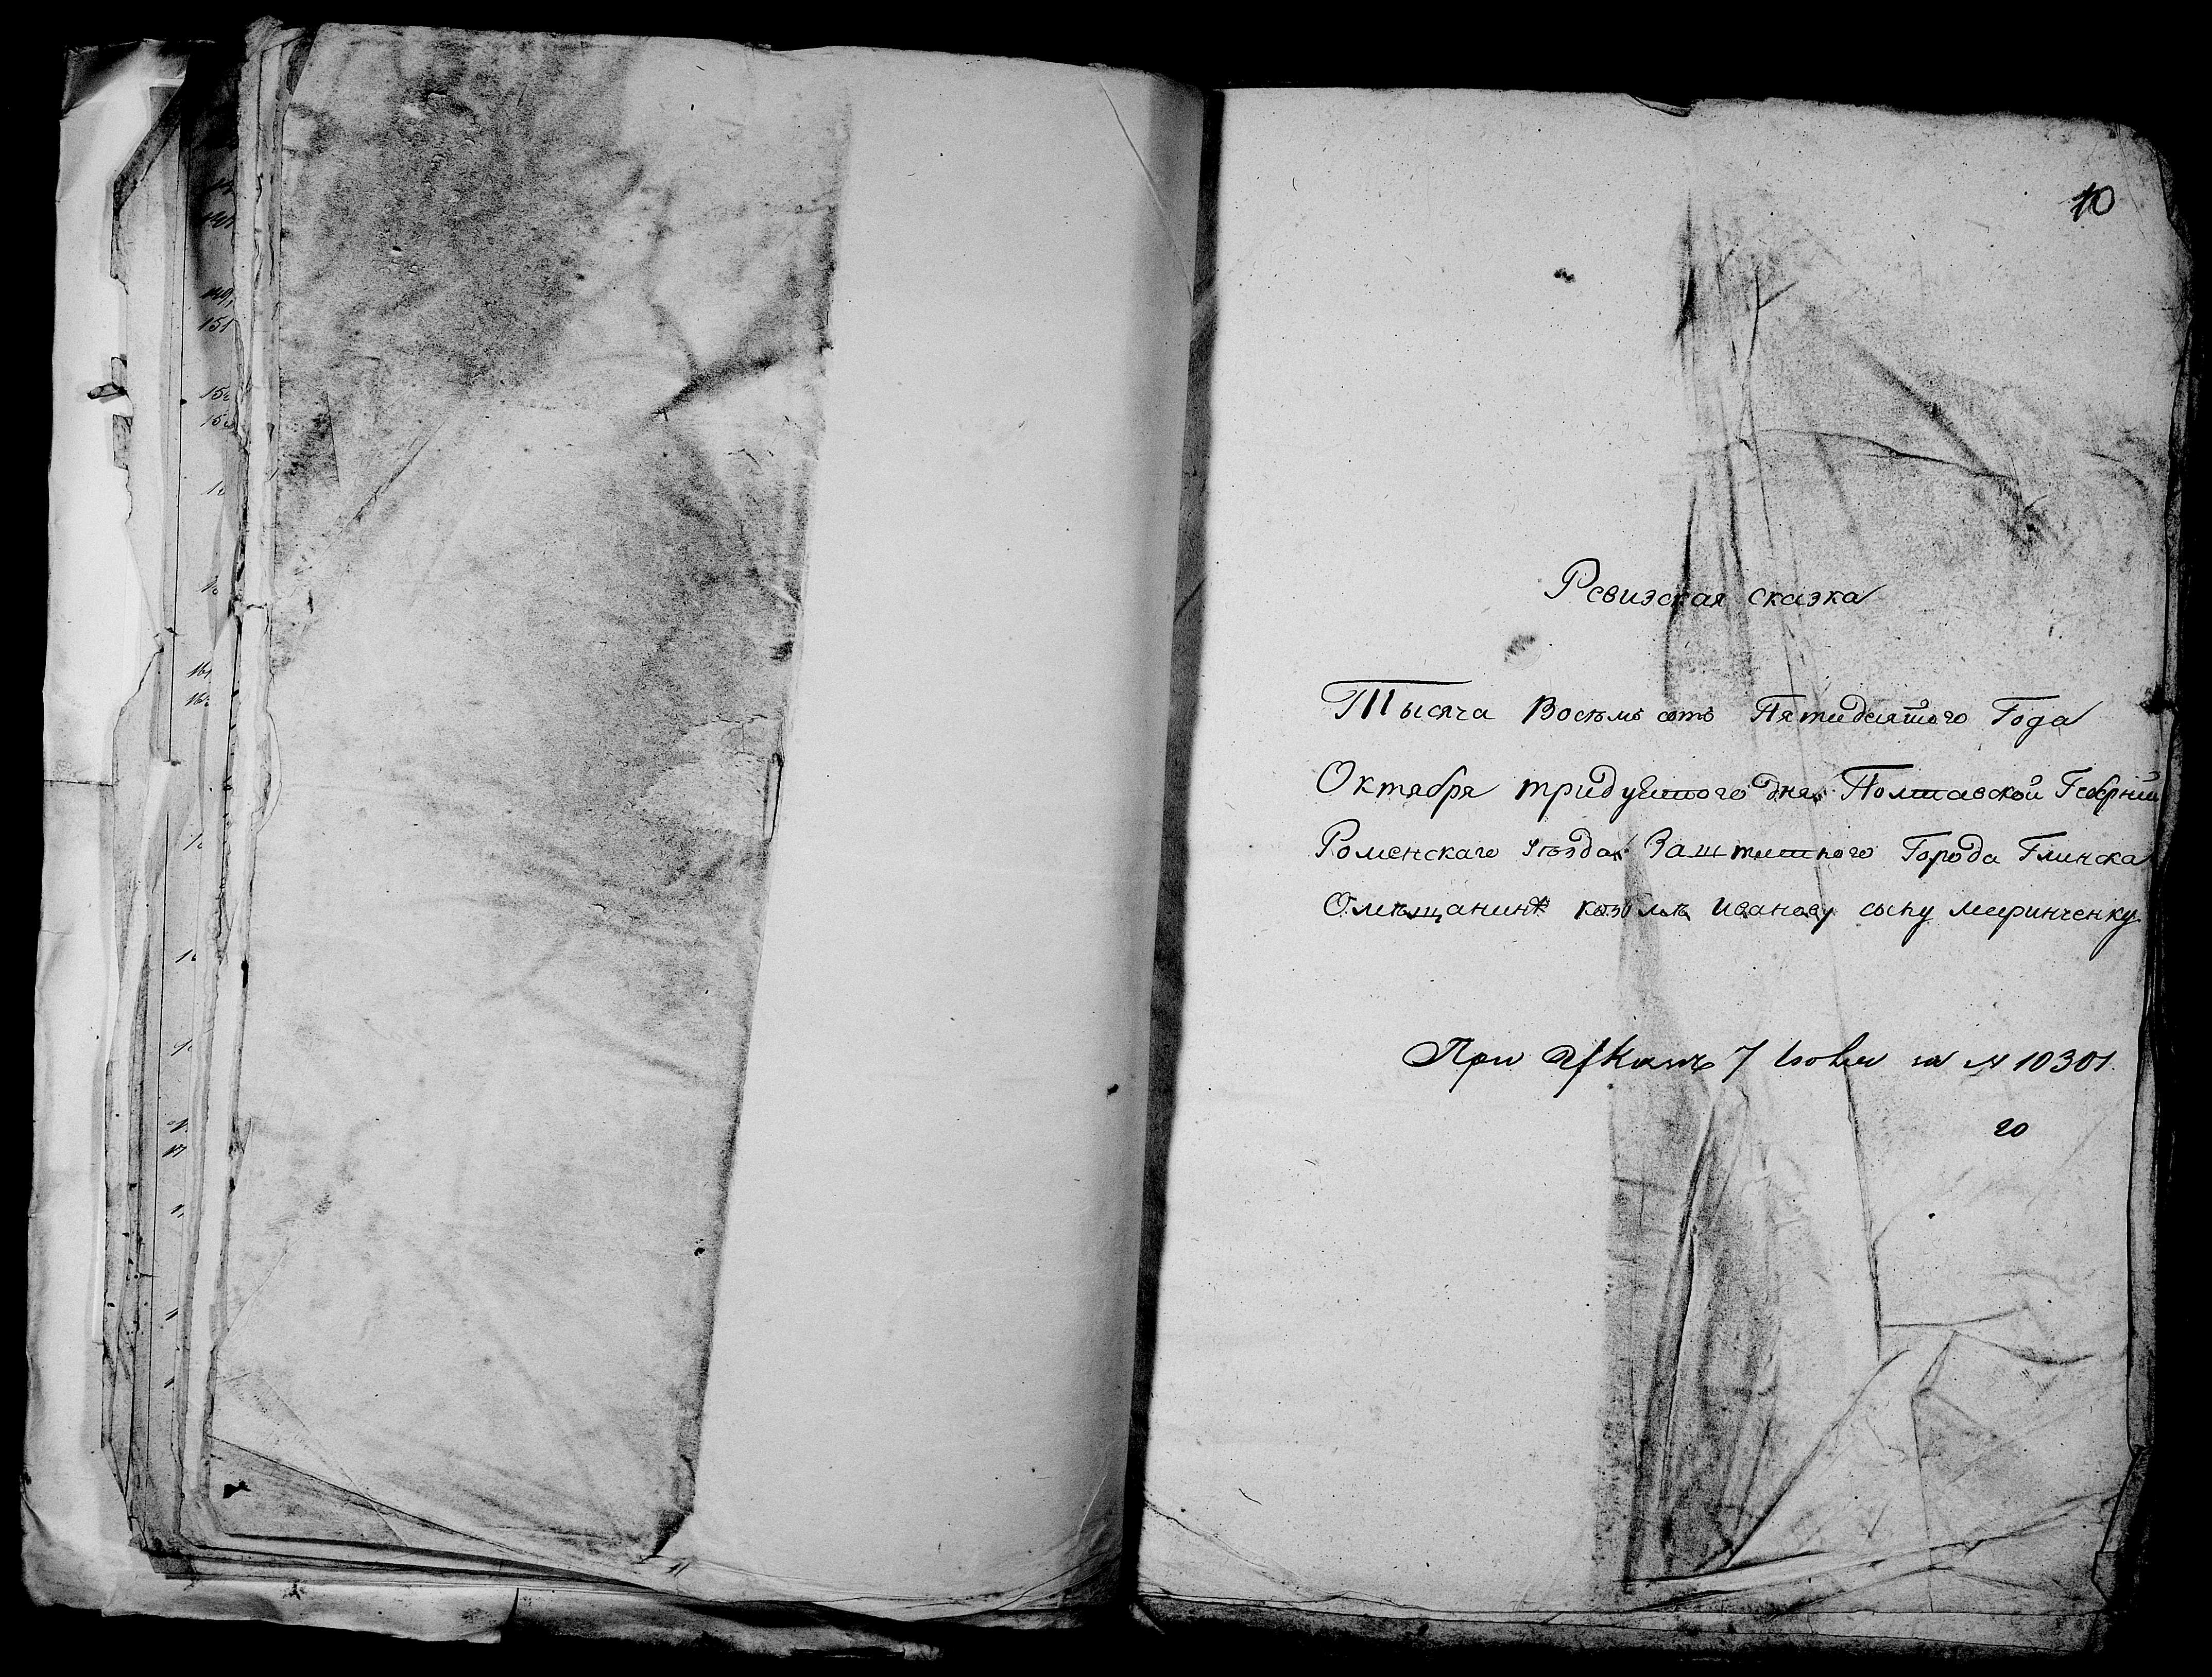 10
Ревизская сказка
Тысяча Восемь сотъ Пятидесятого Года
Октября тридцятого дня Полтавской Губерний
Роменскаго Уѣзда Заштатного Города Глинска
О мѣщанинѣ козмѣ Иванову сыну миринченку
При Указѣ 7 за № 10301
20
151